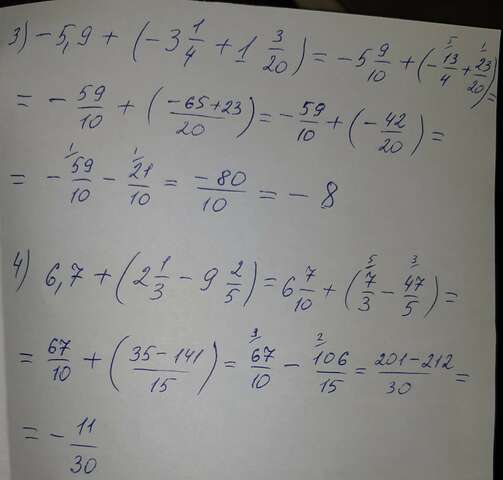 3) -5,9 + (-3 1/4 + 1 3/20) = -5 9/10 + (-13/4 + 23/20) =
= -59/10 + (-65+23/20) = -59/10 + (-42/20) =
= -59/10 - 21/10 = -80/10 = -8
4) 6,7 + (2 1/3 - 9 2/5) = 6 7/10 + (7/3 - 47/5) =
= 67/10 + (35-141/15) = 67/10 - 106/15 = 201-212/30 =
= -11/30